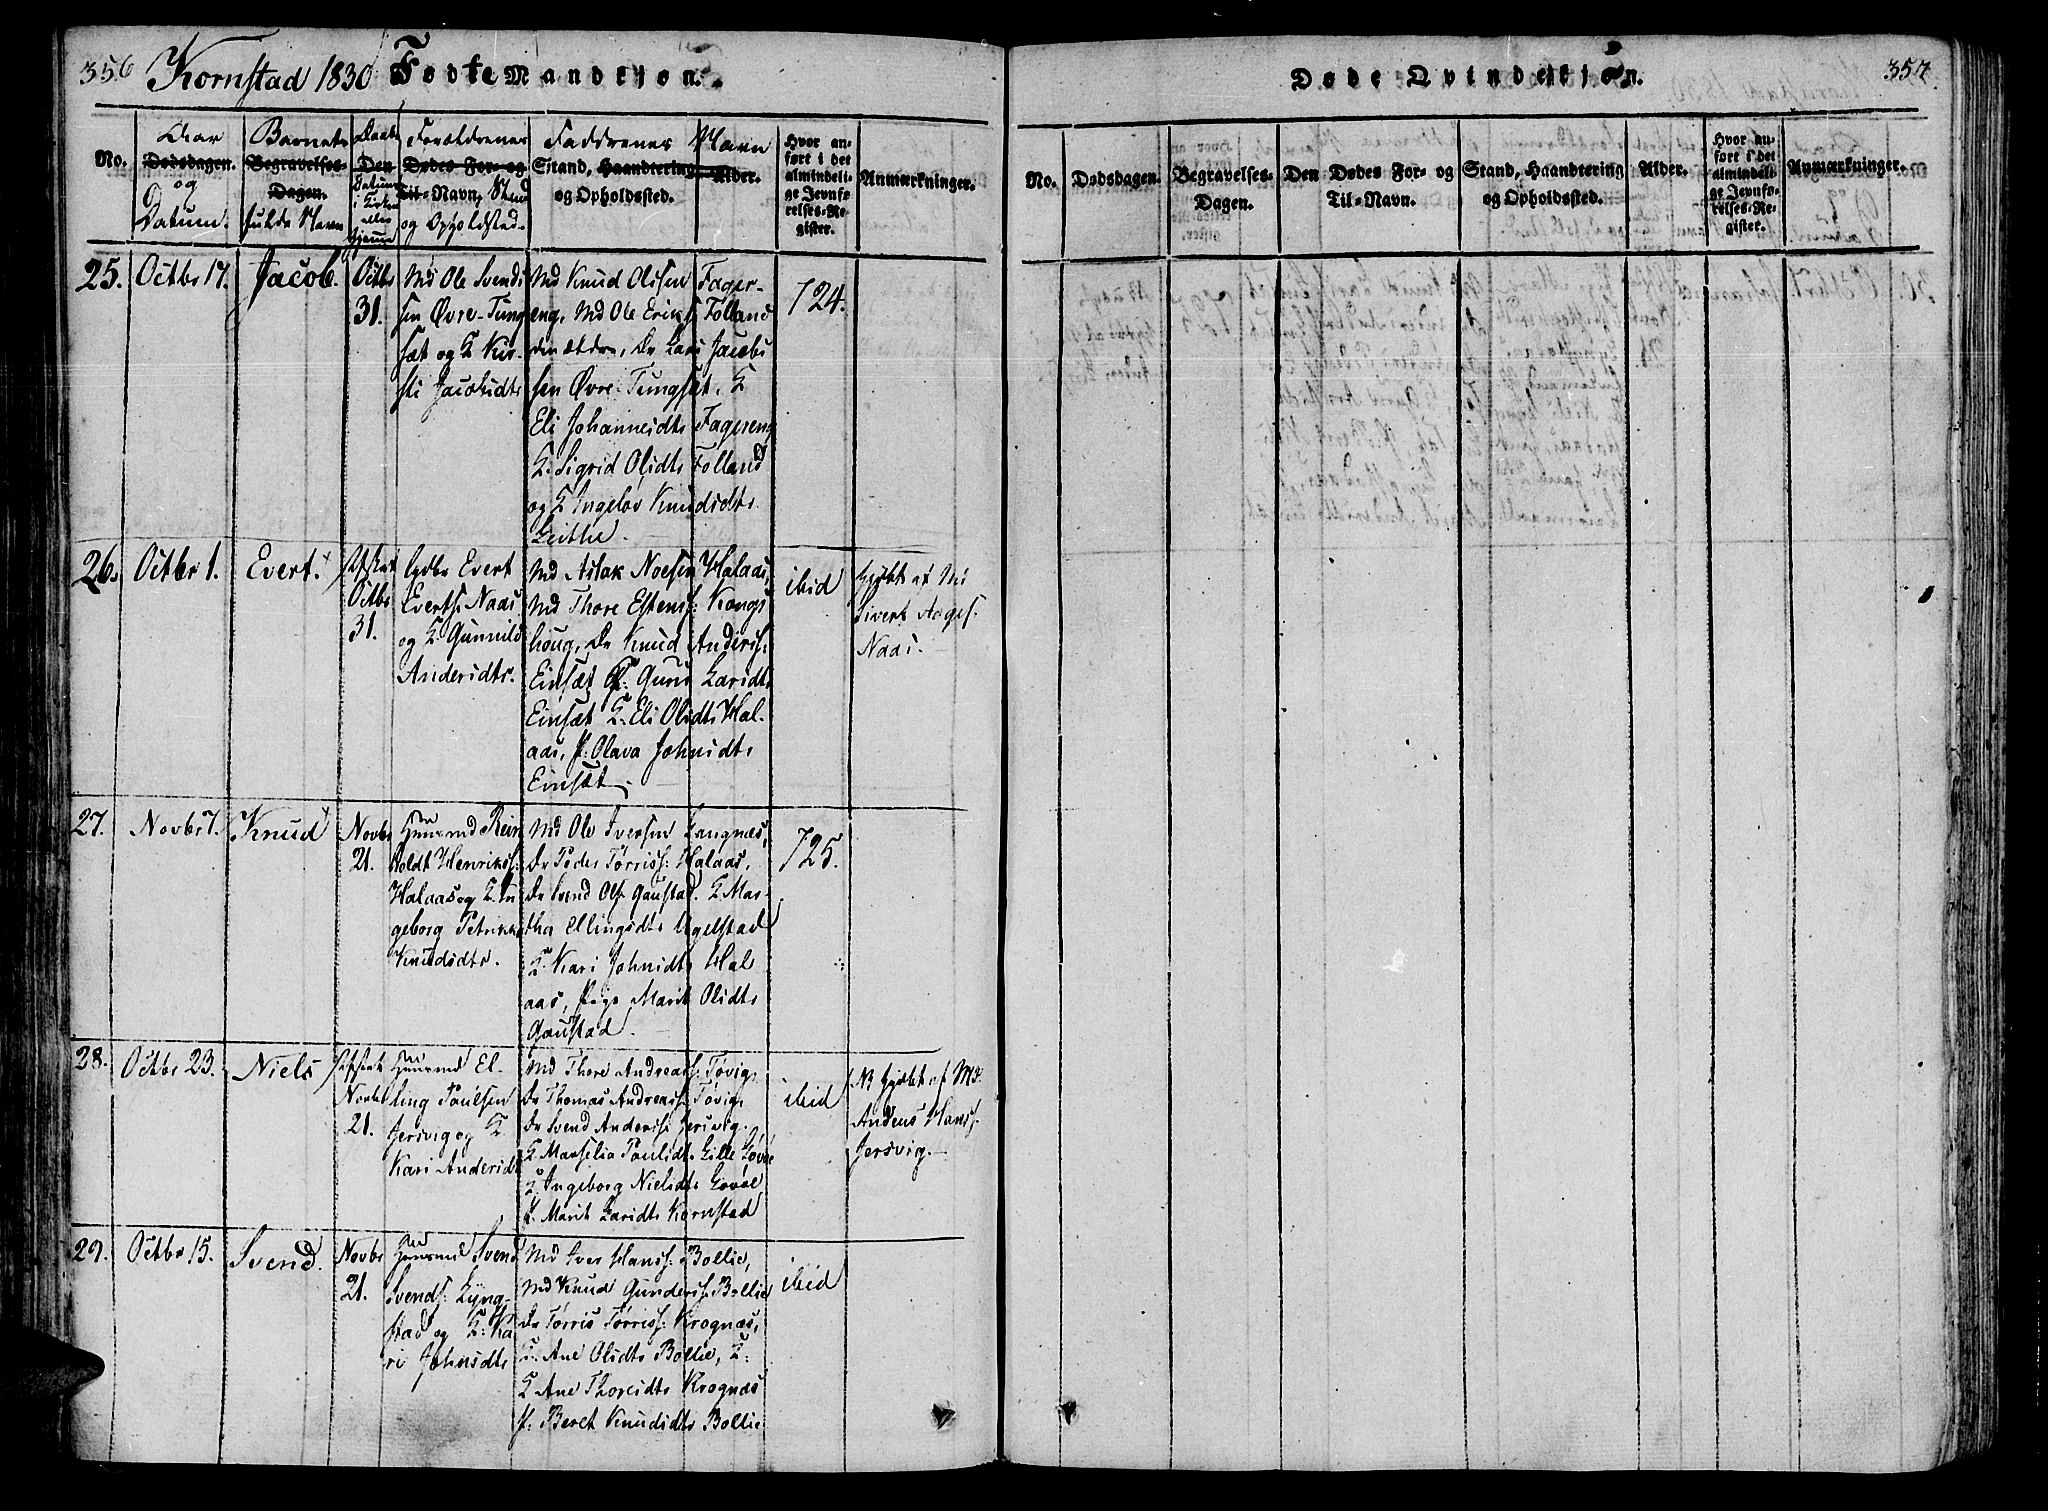 356 Kornstad 1830 Fødte Mandkiøn.
No.
Aar
Dødsdagen.
og
Datum.
Barnets
Begravelses-
Dagen.
fulde Navn
Daab
Den
Datum
i Kirken
eller
hjemme
Forældrenes
Dødes For- og
Til-Navn, Stand
og Opholdsted.
Faddrenes
Stand, Haandtering
og Opholdssted.
Navn
Alder.
Hvor an-
ført i det
almindeli-
ge Jevnfø-
relses-Re-
gister.
Anmærkninger.
25.
Octbr 17.
Jacob.
Octbr
31.
Md Ole Svends
sen Øvre-Tung
sæt og K Kir-
sti Jacobsdtr
Md Knud Olssen Fager-
eng, Md Ole Eriks. Folland
den ældre, Dr Lars Jacobs
sen Øvre Tungsæt. K
Eli Johannesdtr Fagereng
K. Sigrid Olsdtr Folland
og K Ingebor Knudsdtr
Leithe.
724.
26.
Octbr 1.
Evert.
Octbr
31.
Evert
Everts. Naas
og K. Gunnild
Andersdtr.
Md Aslak Noesen Halaas,
Md Thore Estenss. Kongs
houg, Dr Knud Anderss.
Einsæt K. Guru Larsdtr
Einsæt K. Eli Olsdtr Hal-
aas, P. Olava Johnsdtr
Einsæt.
ibid
hjdbt af Md
Sivert Aages.
Naas.
27.
Novbr 7.
Knud
Novbr
21.
Huusmd Rein
holdt Henrikss.
Halaas og K. In
geborg Petrikke
Knudsdtr.
Md Ole Iversen Langnæs,
Dr Peder Tørriss. Halaas,
Dr Svend Ols. Gaustad. K Mar-
tha Ellingsdtr Ugelstad
K. Kari Johnsdtr Hal
aas, Pige Marit Olsdtr
Gaustad.
725.
28.
Octbr 23.
Niels
Novbr
21.
Huusmd El-
ling Poulsen
Jersvig og K
Kari Andersdtr
Md Thore Andreass. Tøvig,
Dr Thomas Andreass. Tøvig,
Dr Svend Anderss. Jersvig.
K. Marselia Poulsdtr Lille Løvøe
K. Ingeborg Nielsdtr Lovøe
P. Marit Larsdtr Kornstad
ibid
NB hjdbt af Md
Anders Hanss.
Jersvig.
29.
Octbr 15.
Svend.
Novbr
21.
Huusmd Svend
Svends. Lyng-
stad og K. Ka
ri Johnsdtr
Md Iver Hanss. Bollie,
Md Knud Gunderss. Bollie
Dr Tørris Tørriss. Krognæs,
K. Ane Olsdtr Bollie, K.
K Ane Thoresdtr Krognæs
P. Beret Knudsdtr Bollie
ibid
Døde Qvindekiøn. 357
No.
Dødsdagen.
Begravelses-
Dagen.
Den Dødes For- og
Til-Navn.
Stand, Haandtering
og Opholdssted.
Alder.
Hvor an-
ført i det
almindeli-
ge Jevnfø-
relses-Re-
gister.
Anmærkninger.